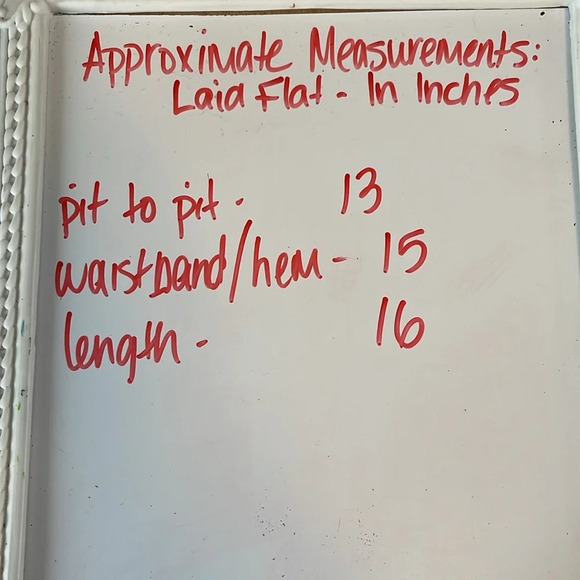 Approximate Measurements:
Laid Flat - In Inches
pit to pit - 13
waistband/hem - 15
length - 16